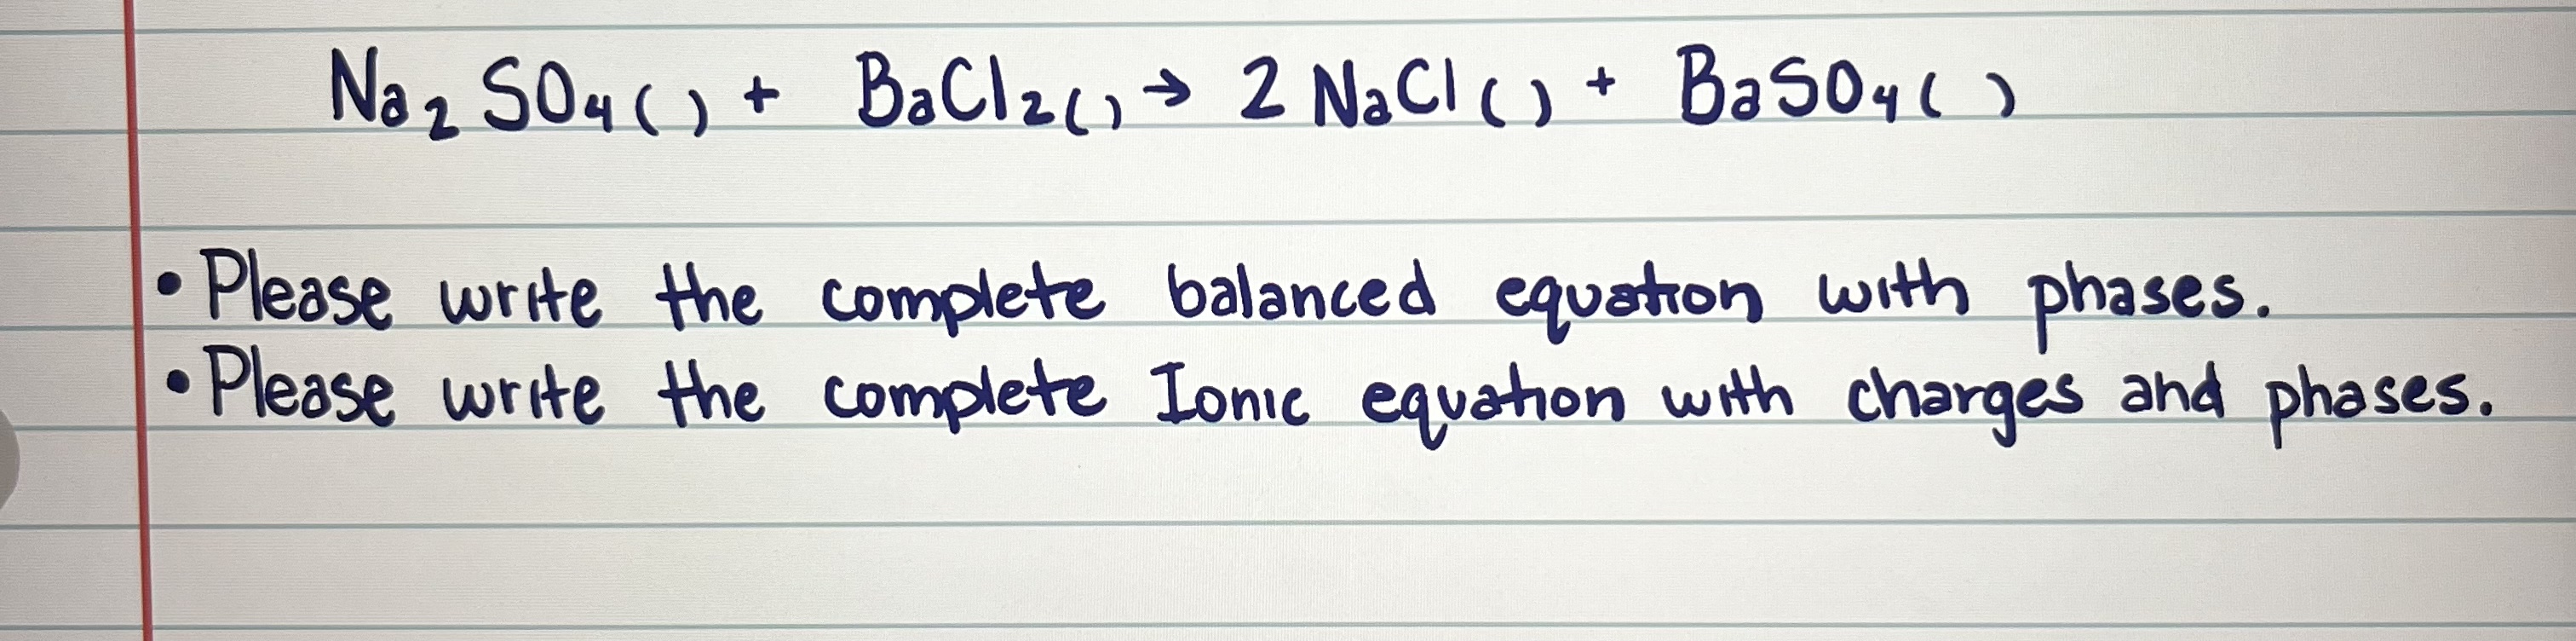 Na₂SO₄( ) + BaCl₂( ) → 2 NaCl( ) + BaSO₄( )
• Please write the complete balanced equation with phases.
• Please write the complete Ionic equation with charges and phases.